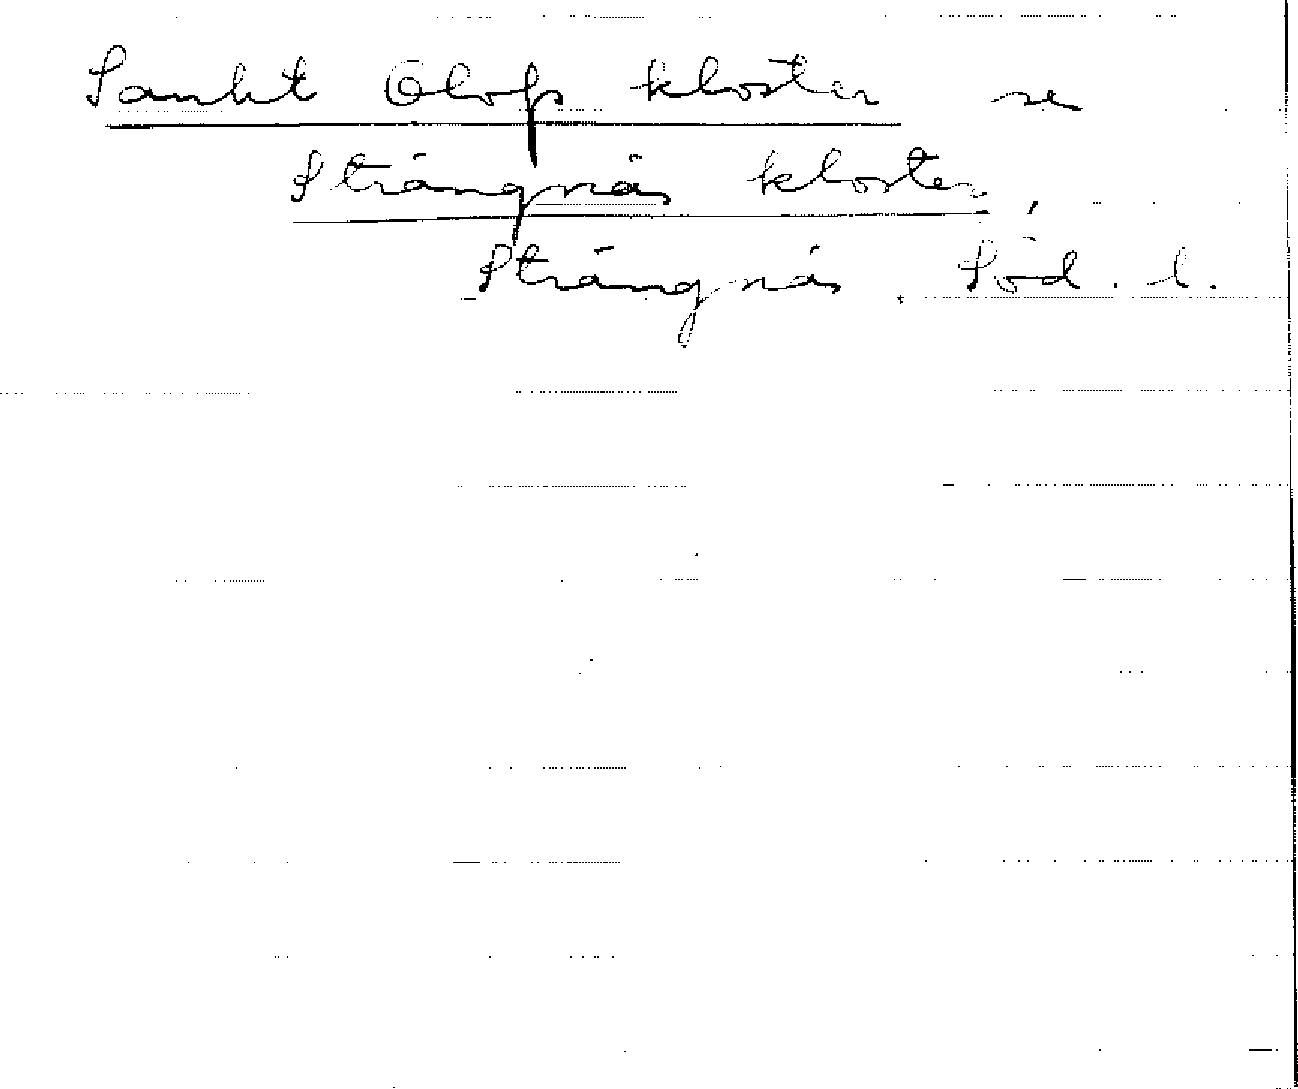 Sankt Olofs kloster se
Strängnäs kloster,
Strängnäs. Söd. l.